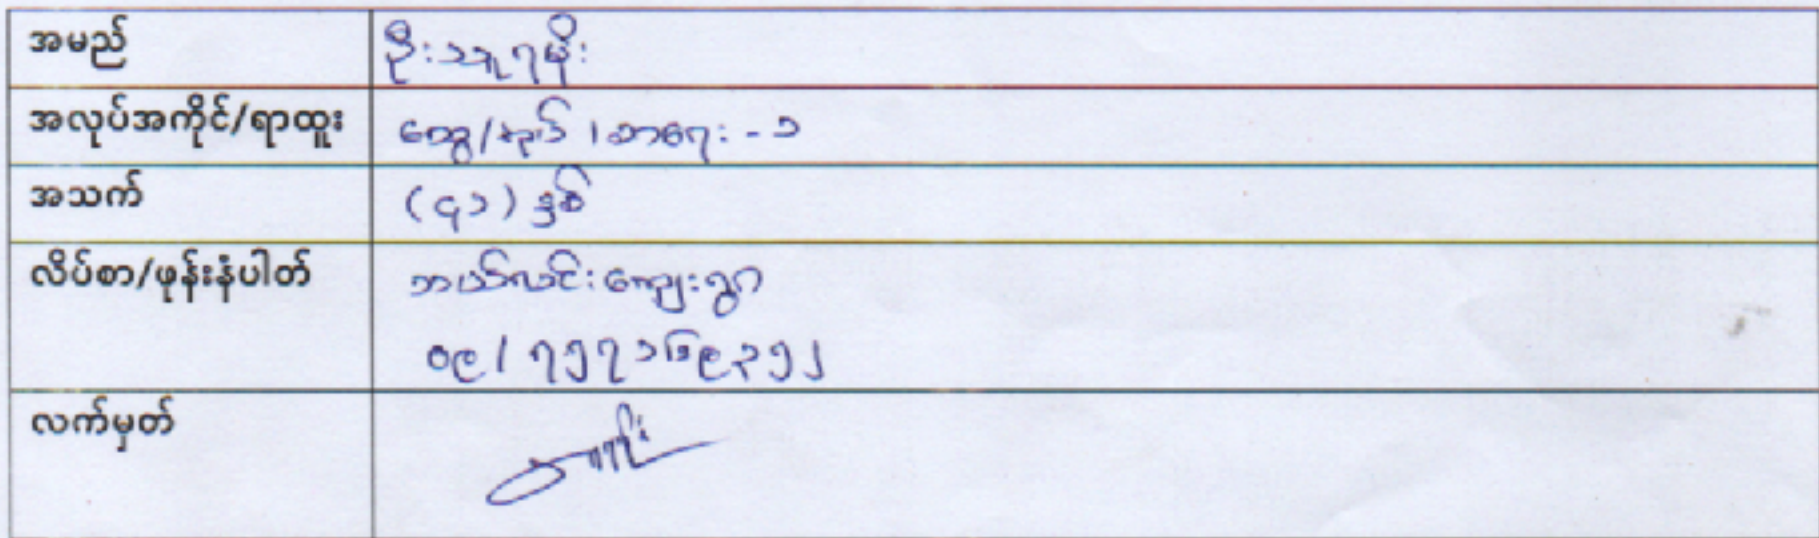 အမည် ဦးသူရမိုး
အလုပ်အကိုင်/ရာထူး ထွေ/အုပ် ၊ စာရေး - ၁
အသက် (၄၁) နှစ်
လိပ်စာ/ဖုန်းနံပါတ် ဘယ်လင်းကျေးရွာ
၀၉ / ၇၅၇၁၆၉၃၅၂
လက်မှတ်